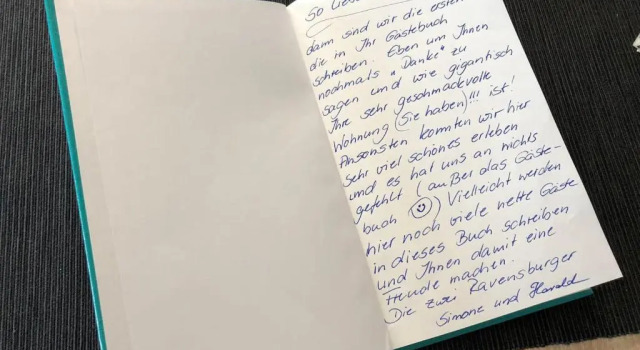 So
dann sind wir die ersten
die in Ihr Gästebuch
schreiben. Eben um Ihnen
nochmals „Danke" zu
sagen und wie gigantisch
Ihre sehr geschmackvolle
Wohnung (Sie haben)!!! ist!
Ansonsten konnten wir hier
sehr viel schönes erleben
und es hat uns an nichts
gefehlt (außer das Gäste-
buch ☺) Vielleicht werden
hier noch viele nette Gäste
in dieses Buch schreiben
und Ihnen damit eine
Freude machen.
Die zwei Ravensburger
Simone und Harald